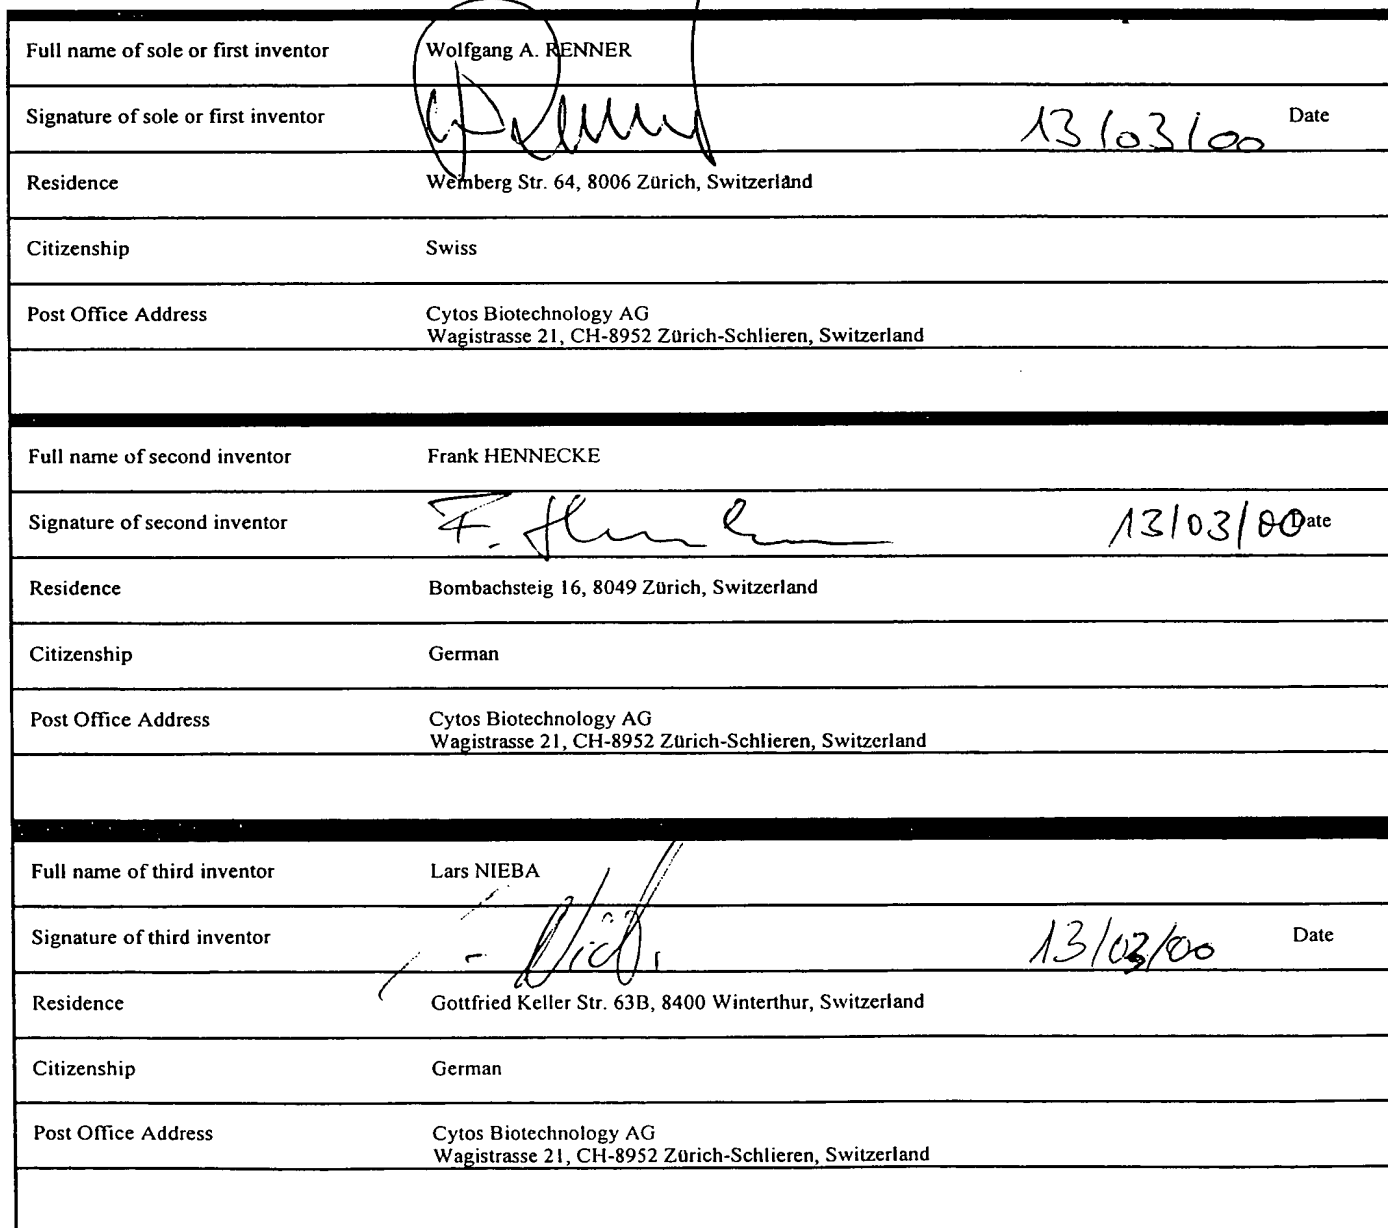 Full name of sole or first inventor Wolfgang A. RENNER
Signature of sole or first inventor 13/03/00 Date
Residence Weinberg Str. 64, 8006 Zürich, Switzerland
Citizenship Swiss
Post Office Address Cytos Biotechnology AG
Wagistrasse 21, CH-8952 Zürich-Schlieren, Switzerland
Full name of second inventor Frank HENNECKE
Signature of second inventor F. Hennecke 13/03/00 Date
Residence Bombachsteig 16, 8049 Zürich, Switzerland
Citizenship German
Post Office Address Cytos Biotechnology AG
Wagistrasse 21, CH-8952 Zürich-Schlieren, Switzerland
Full name of third inventor Lars NIEBA
Signature of third inventor 13/03/00 Date
Residence Gottfried Keller Str. 63B, 8400 Winterthur, Switzerland
Citizenship German
Post Office Address Cytos Biotechnology AG
Wagistrasse 21, CH-8952 Zürich-Schlieren, Switzerland